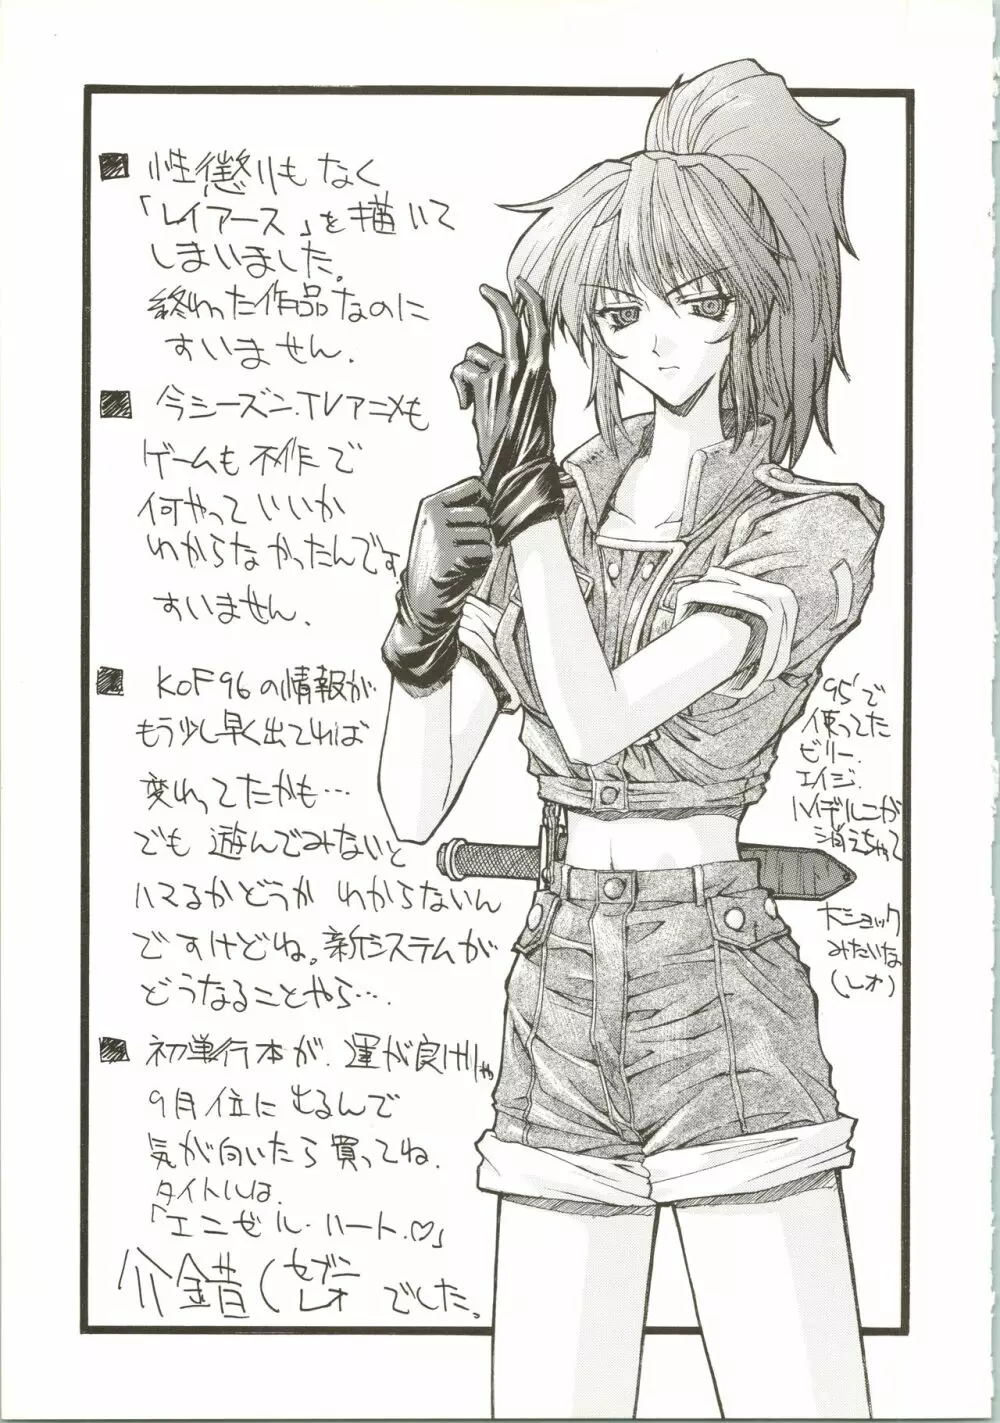 性懲りもなく
「レイアース」を描いて
しまいました。
終わった作品なのに
すいません.
今シーズン.TVアニメも
ゲームも不作で
何やっていいか
わからなかったんです.
すいません.
KOF96の情報が
もう少し早く出てれば
変わってたかも…
でも遊んでみないと
ハマるかどうかわからないん
ですけどね。新システムが
どうなることやら….
初単行本が.運が良けりゃ
9月位に出るんで
気が向いたら買ってね.
タイトルは.
「エンゼル・ハート.♡」
介錯(セブン
レオ でした。
95'で
使ってた
ビリー.
エイジ.
ハイデルンが
消えちゃって
大ショック
みたいな
(レオ)